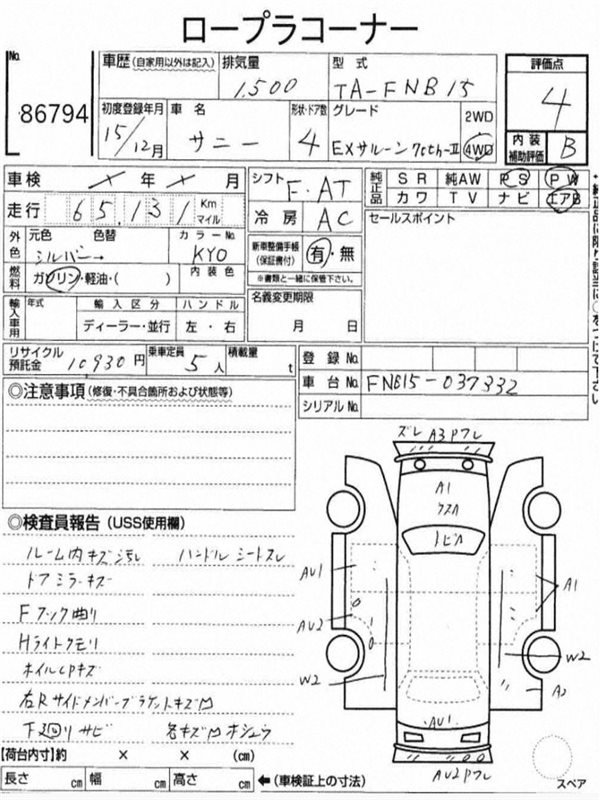 ロープラコーナー
No.
86794
車歴 (自家用以外は記入)
排気量
1,500
型式
TA-FNB15
評価点
4
初度登録年月
15/12月
車名
サニー
形状・ドア数
4
グレード
EXサルーン70th-II
2WD
4WD
内装
補助評価
B
車検
年
月
シフト
F.AT
純正品
SR
純AW
PS
PW
カワ
TV
ナビ
エアB
走行
65,131
Km
マイル
冷房
AC
セールスポイント
外色
元色
シルバー
色替
カラーNo.
KYO
新車整備手帳
(保証書付)
有・無
※書類と一緒に保管下さい。
燃料
ガソリン・軽油・( )
内装色
名義変更期限
月 日
輸入車用
年式
輸入区分
ハンドル
ディーラー・並行
左・右
リサイクル
預託金
10,930円
乗車定員
5人
積載量
t
登録No.
車台No.
FNB15-037332
シリアルNo.
◎注意事項 (修復・不具合箇所および状態等)
◎検査員報告 (USS使用欄)
ルーム内キズ汚れ
ハンドル シートスレ
ドアミラーキズ
Fフック曲り
Hライトクモリ
ホイルCPキズ
右Rサイドメンバーブラケットキズ凹
下回りサビ
各キズ凹
ズレ A3Pワレ
A1
トビA
AU1
A1
AU2
W2
W2
A2
AU1
AU2Pワレ
スペア
【荷台内寸】約 × × (cm)
長さ cm 幅 cm 高さ cm
←(車検証上の寸法)